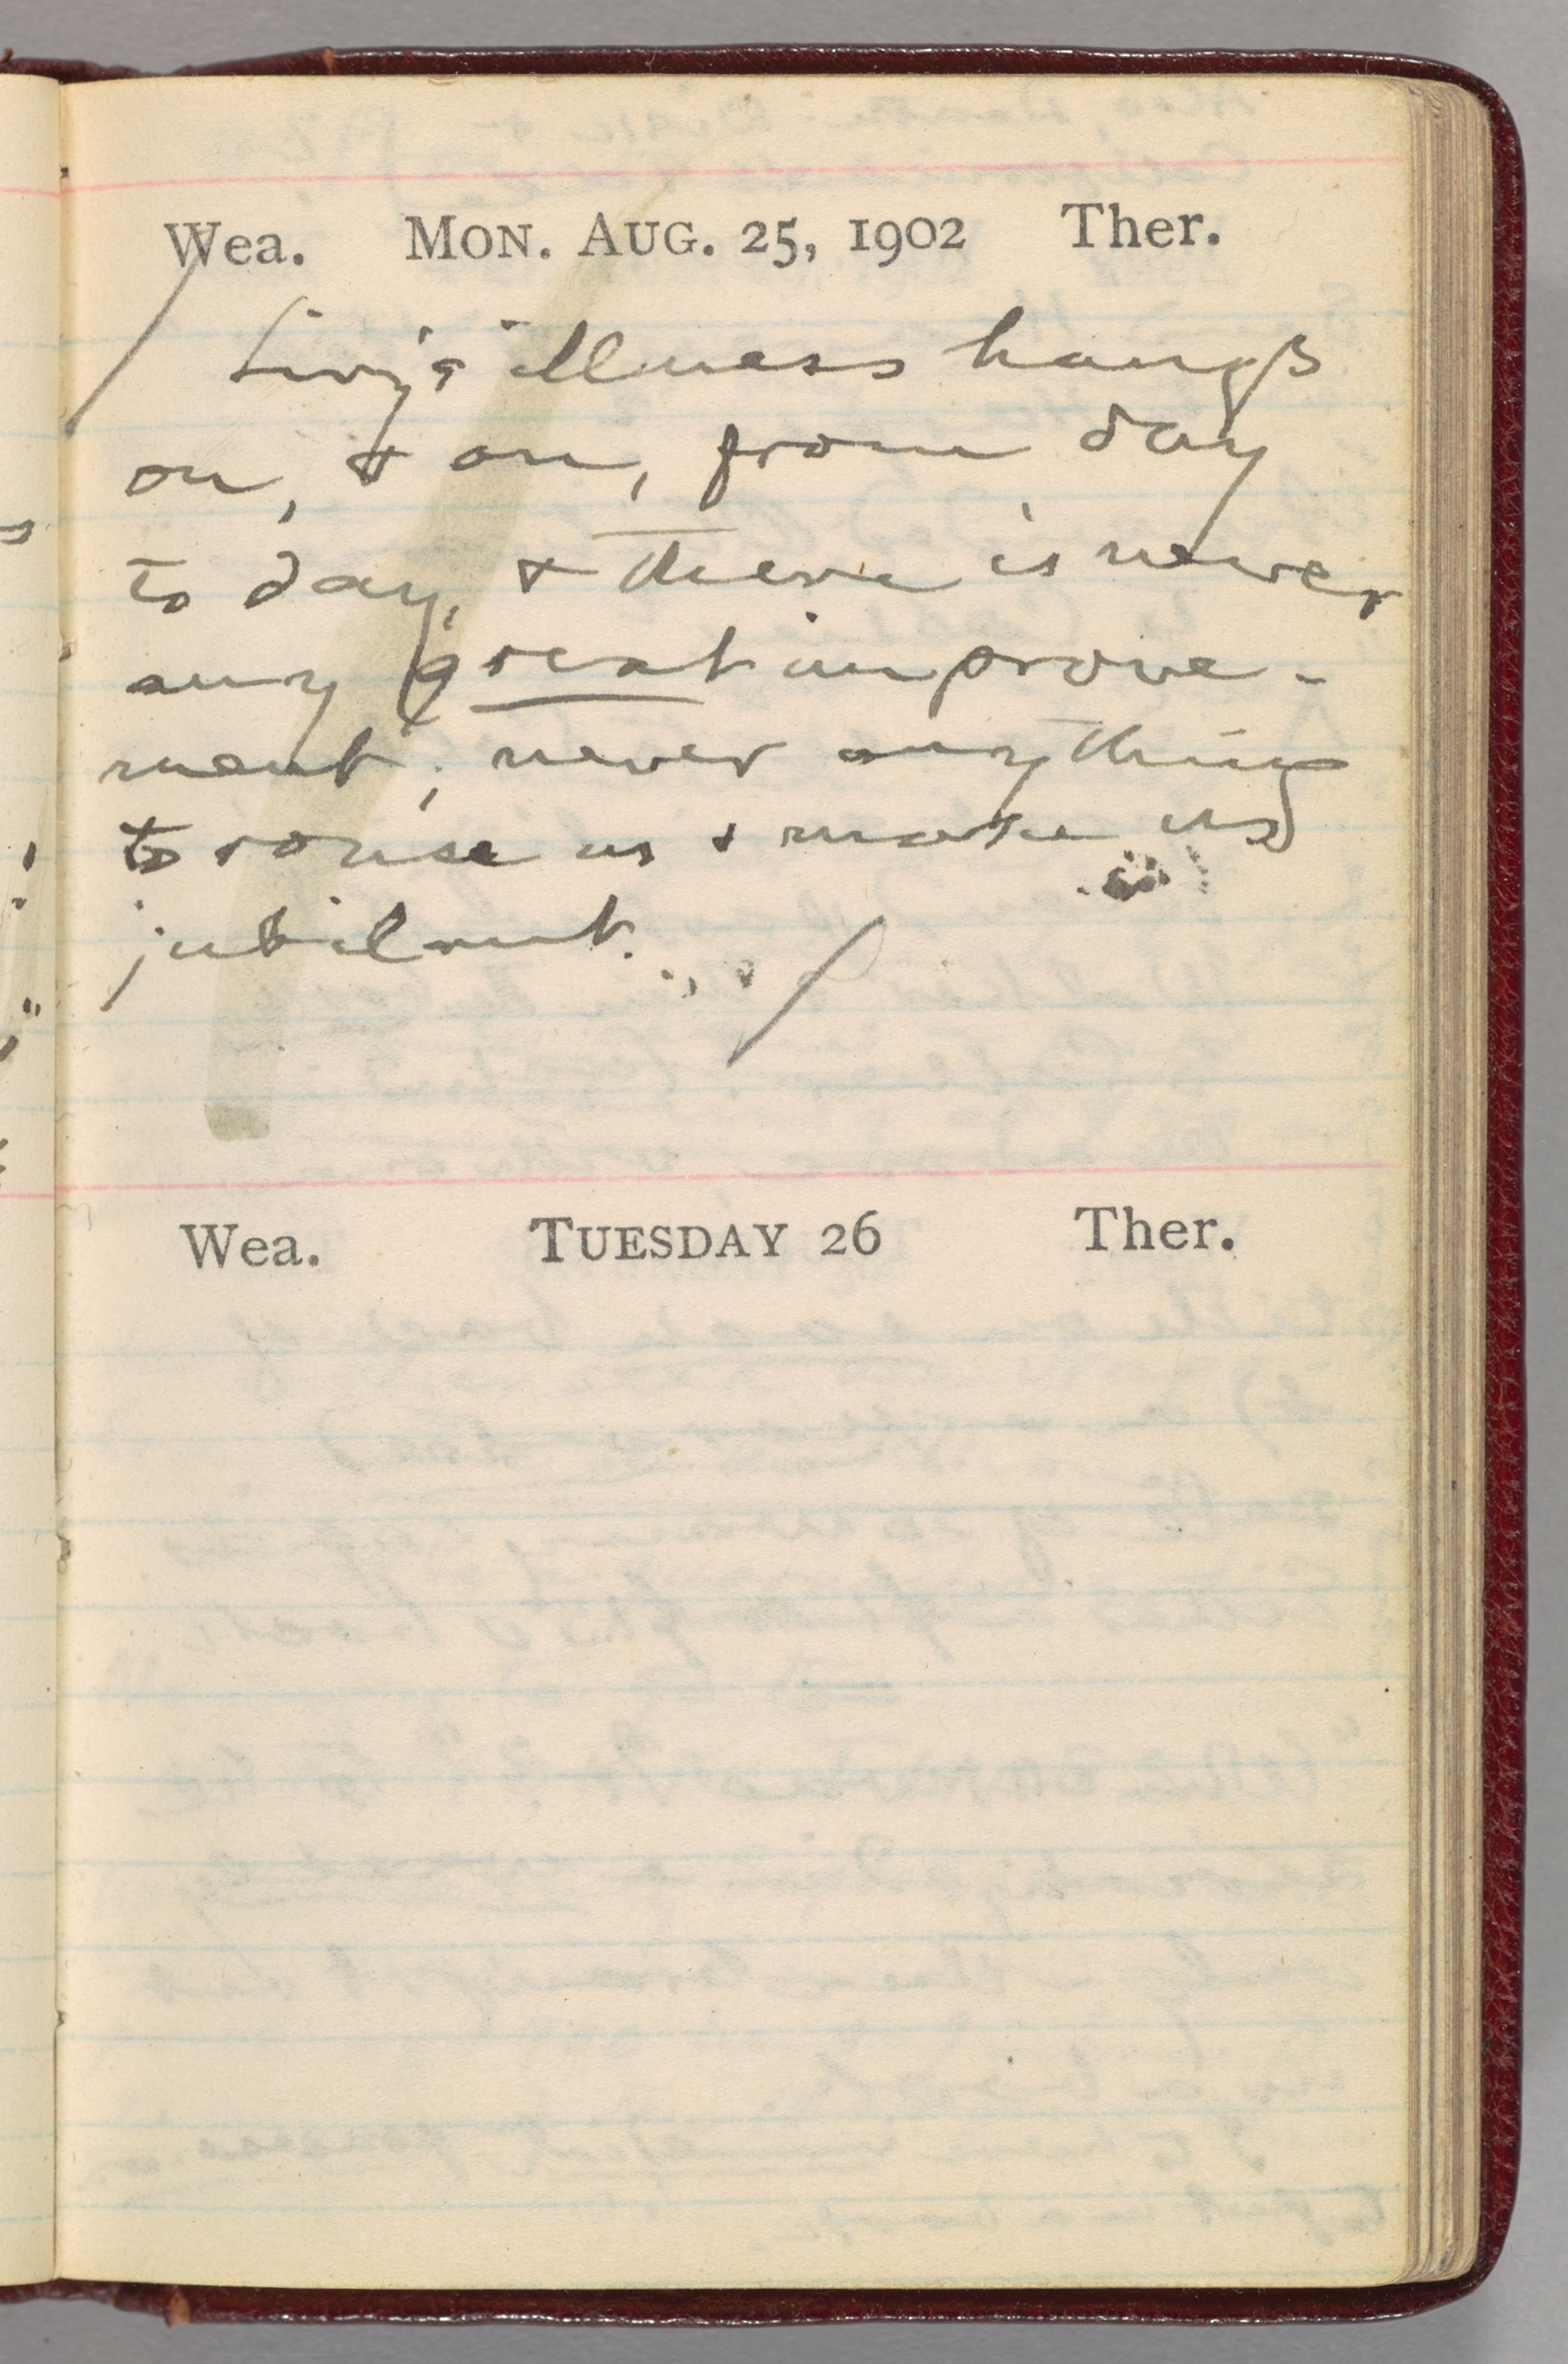 Wea. MON. AUG. 25, 1902 Ther.
Livy's illness hangs
on, & on, from day
to day, & there is never
any great improve-
ment; never anything
to rouse us & make us
jubilant.
Wea. TUESDAY 26 Ther.